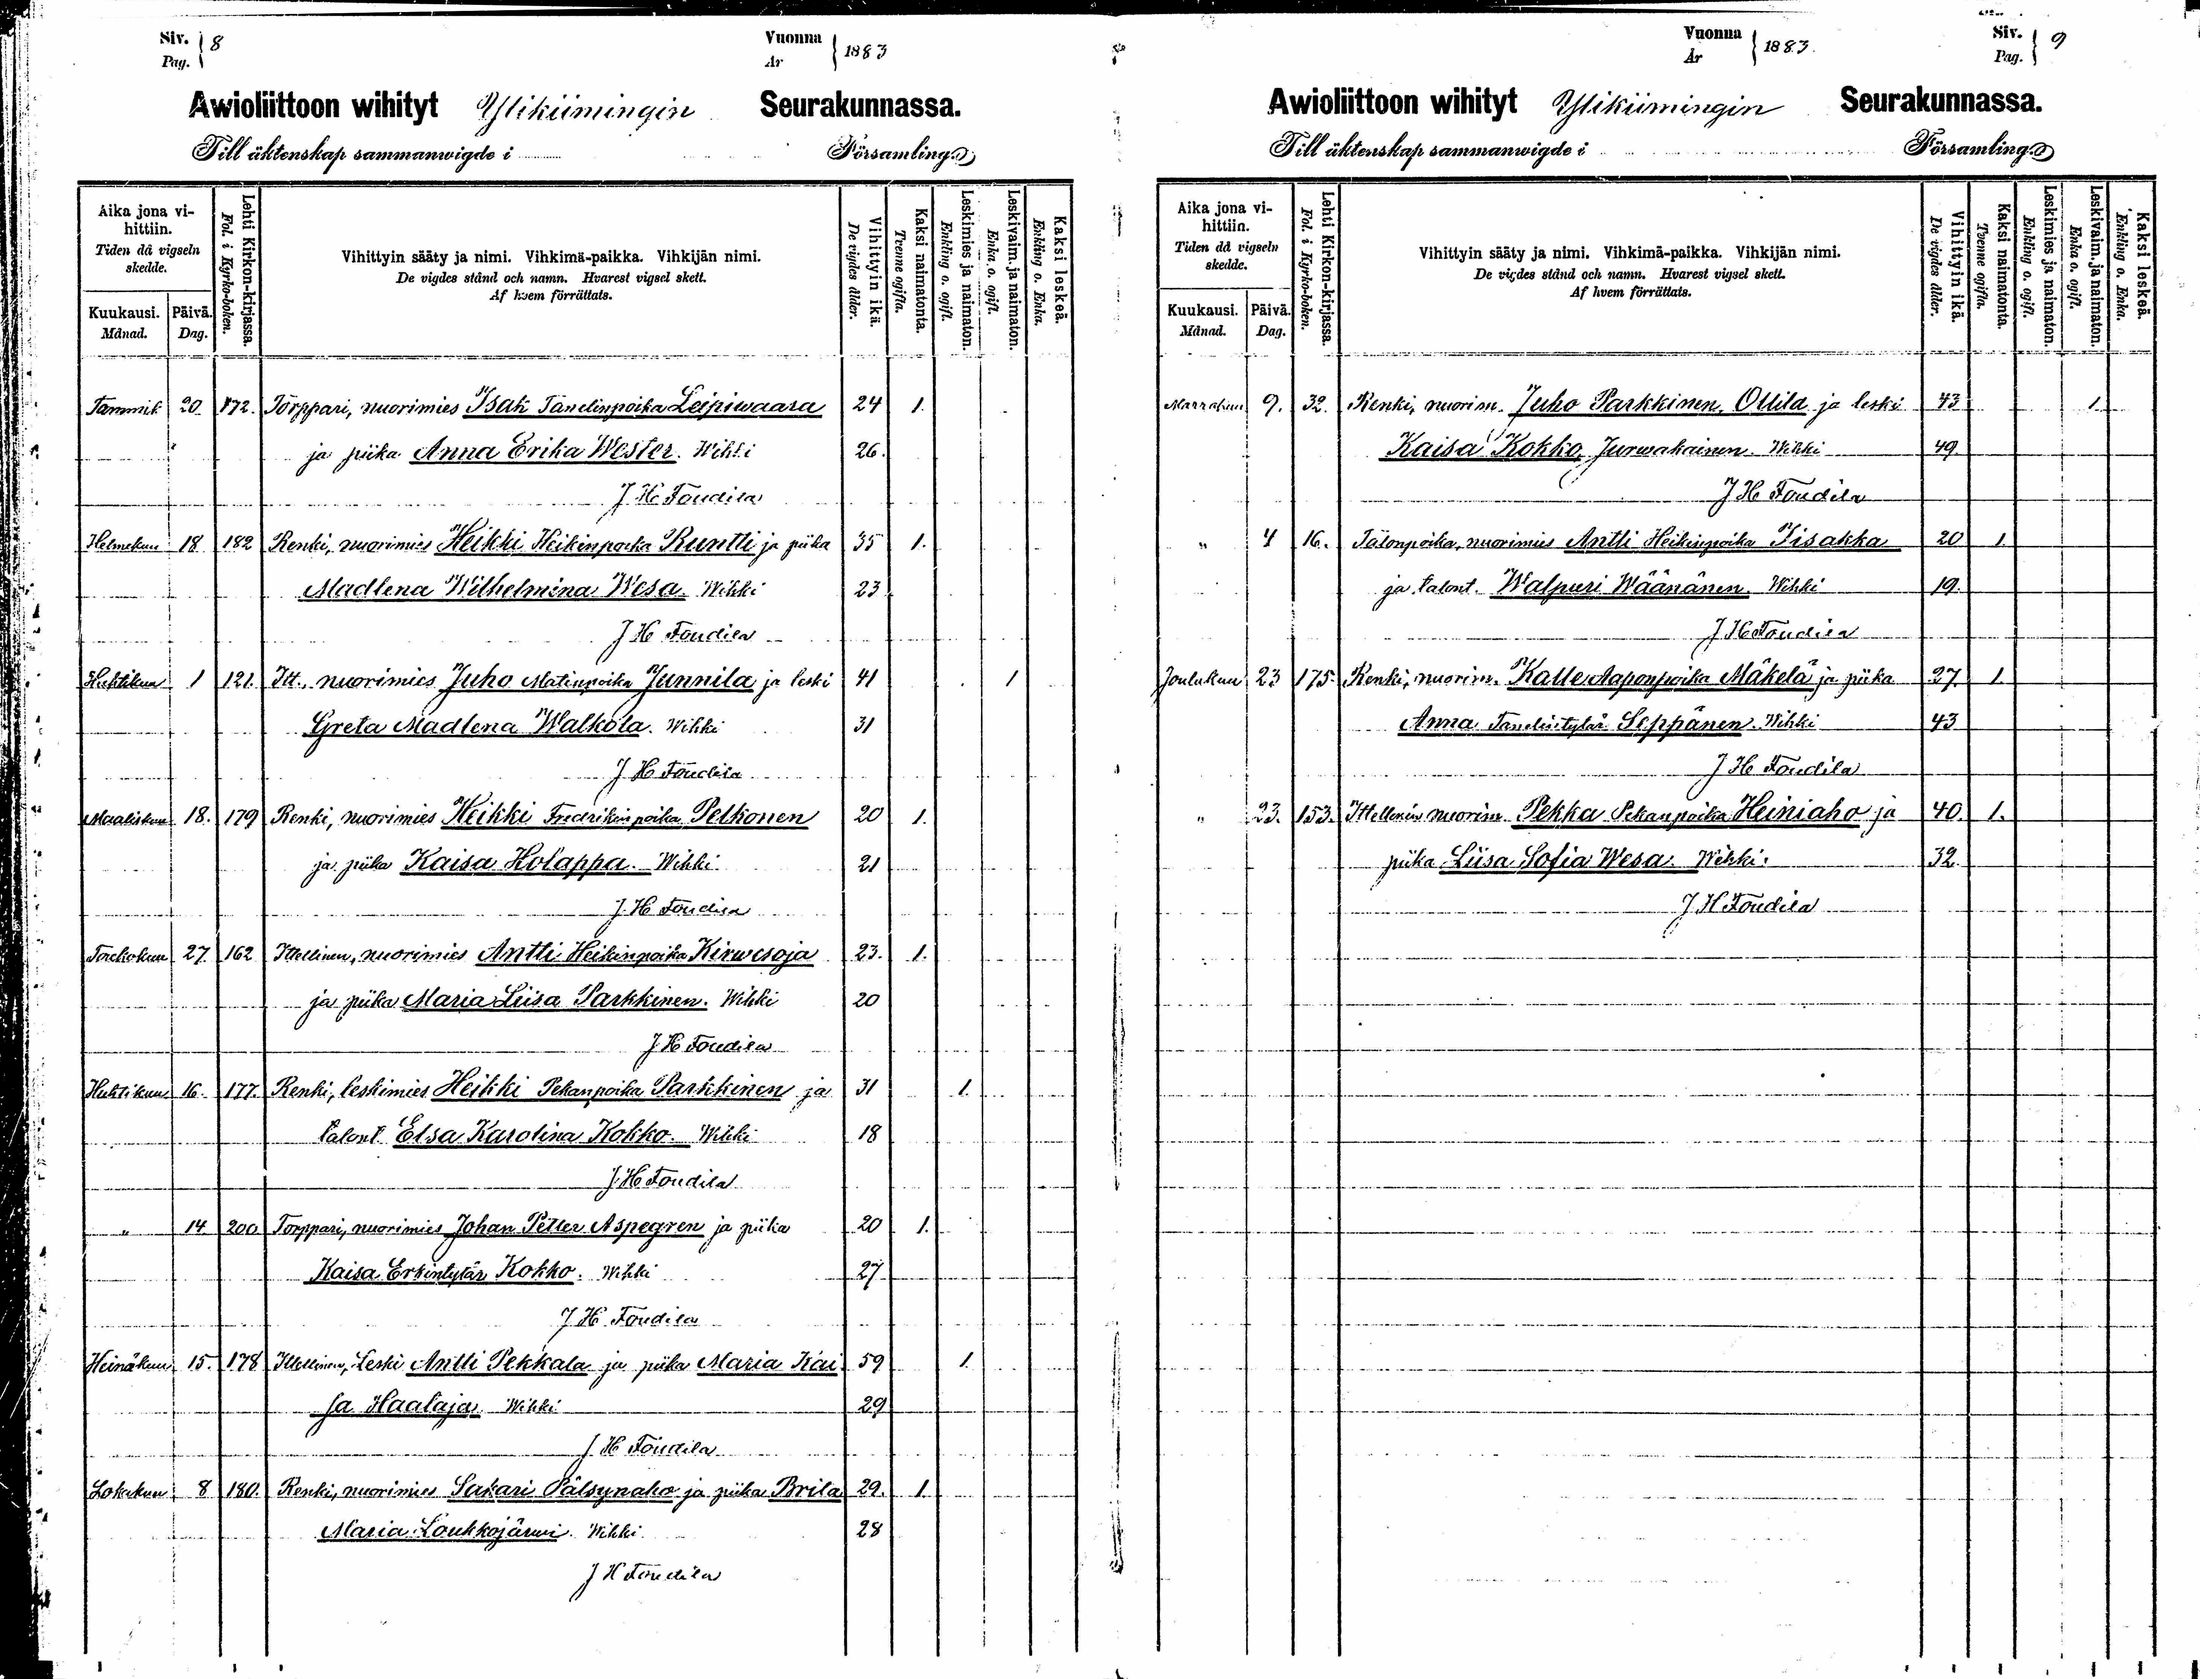 Siv. 8
Pag.
Vuonna 1883
År
Awioliittoon wihityt Ylikiimingin Seurakunnassa.
Till äktenskap sammanwigde i Församling.
Aika jona vihittiin.
Tiden då vigseln skedde.
Kuukausi. Månad.
Päivä. Dag.
Lehti Kirkon-kirjassa. Fol. i Kyrko-boken.
Vihittyin sääty ja nimi. Vihkimä-paikka. Vihkijän nimi.
De vigdes stånd och namn. Hvarest vigsel skett.
Af hvem förrättats.
Vihittyin ikä. De vigdes ålder.
Kaksi naimatonta. Tvenne ogifta.
Leskimies ja naimaton. Enkling o. ogift.
Leskivaim. ja naimaton. Enka o. ogift.
Kaksi leskeä. Enkling o. Enka.
Tammik 20. 172. Torppari, nuorimies Isak Tanelinpoika Leipiwaara 24 1.
ja piika Anna Erika Wester. Wihki 26.
J H Toudila
Helmekuu 18 182 Renki, nuorimies Heikki Heikinpoika Runtti ja piika 35 1.
Madlena Wilhelmina Wesa. Wihki 23
J H Toudila
Huhtikuu 1 121. Itt., nuorimies Juho Matinpoika Junnila ja leski 41 1
Greta Madlena Walkola. Wihki 31
J H Toudila
Maaliskuu 18. 179 Renki, nuorimies Heikki Fredrikinpoika Pelkonen 20 1.
ja piika Kaisa Holappa. Wihki 21
J. H Toudila
Toukokuu 27. 162 Ittellinen, nuorimies Antti Heikinpoika Kirwesoja 23. 1.
ja piika Maria Liisa Parkkinen. Wihki 20
J H Toudila
Huhtikuu 16. 177. Renki, leskimies Heikki Pekanpoika Parkkinen ja 31 1.
talont. Elsa Karolina Kokko. Wihki 18
J H Toudila
„ 14. 200 Torppari, nuorimies Johan Petter Aspegren ja piika 20 1.
Kaisa Erkintytär Kokko. Wihki 27
J H Toudila
Heinäkuu 15. 178 Ittellinen, Leski Antti Pekkala ja piika Maria Kai 59 1.
sa Haalaja. Wihki 29
J H Toudila
Lokakuu 8 180. Renki, nuorimies Sakari Pälsynaho ja piika Brita 29. 1.
Maria Loukkojärwi. Wihki 28
J H Toudila
Vuonna 1883.
År
Siv. 9
Pag.
Awioliittoon wihityt Ylikiimingin Seurakunnassa.
Till äktenskap sammanwigde i Församling.
Aika jona vihittiin.
Tiden då vigseln skedde.
Kuukausi. Månad.
Päivä. Dag.
Lehti Kirkon-kirjassa. Fol. i Kyrko-boken.
Vihittyin sääty ja nimi. Vihkimä-paikka. Vihkijän nimi.
De vigdes stånd och namn. Hvarest vigsel skett.
Af hvem förrättats.
Vihittyin ikä. De vigdes ålder.
Kaksi naimatonta. Tvenne ogifta.
Leskimies ja naimaton. Enkling o. ogift.
Leskivaim. ja naimaton. Enka o. ogift.
Kaksi leskeä. Enkling o. Enka.
Marrakuu 9. 32. Renki, nuorim. Juho Parkkinen, Ollila ja leski 43 1.
Kaisa Kokko, Jurwakainen. Wihki 49
J H Toudila
„ 4 16. Talonpoika, nuorimies Antti Heikinpoika Iisakka 20 1.
ja talont. Walpuri Wäänänen. Wihki 19.
J H Toudila
Joulukuu 23 175. Renki, nuorim. Kalle Aaponpoika Mäkelä ja piika 27. 1.
Anna Tanelintytär Seppänen. Wihki 43
J H Toudila
„ 23. 153. Ittellinen nuorim. Pekka Pekanpoika Heiniaho ja 40. 1.
piika Liisa Sofia Wesa. Wihki. 32.
J H Toudila